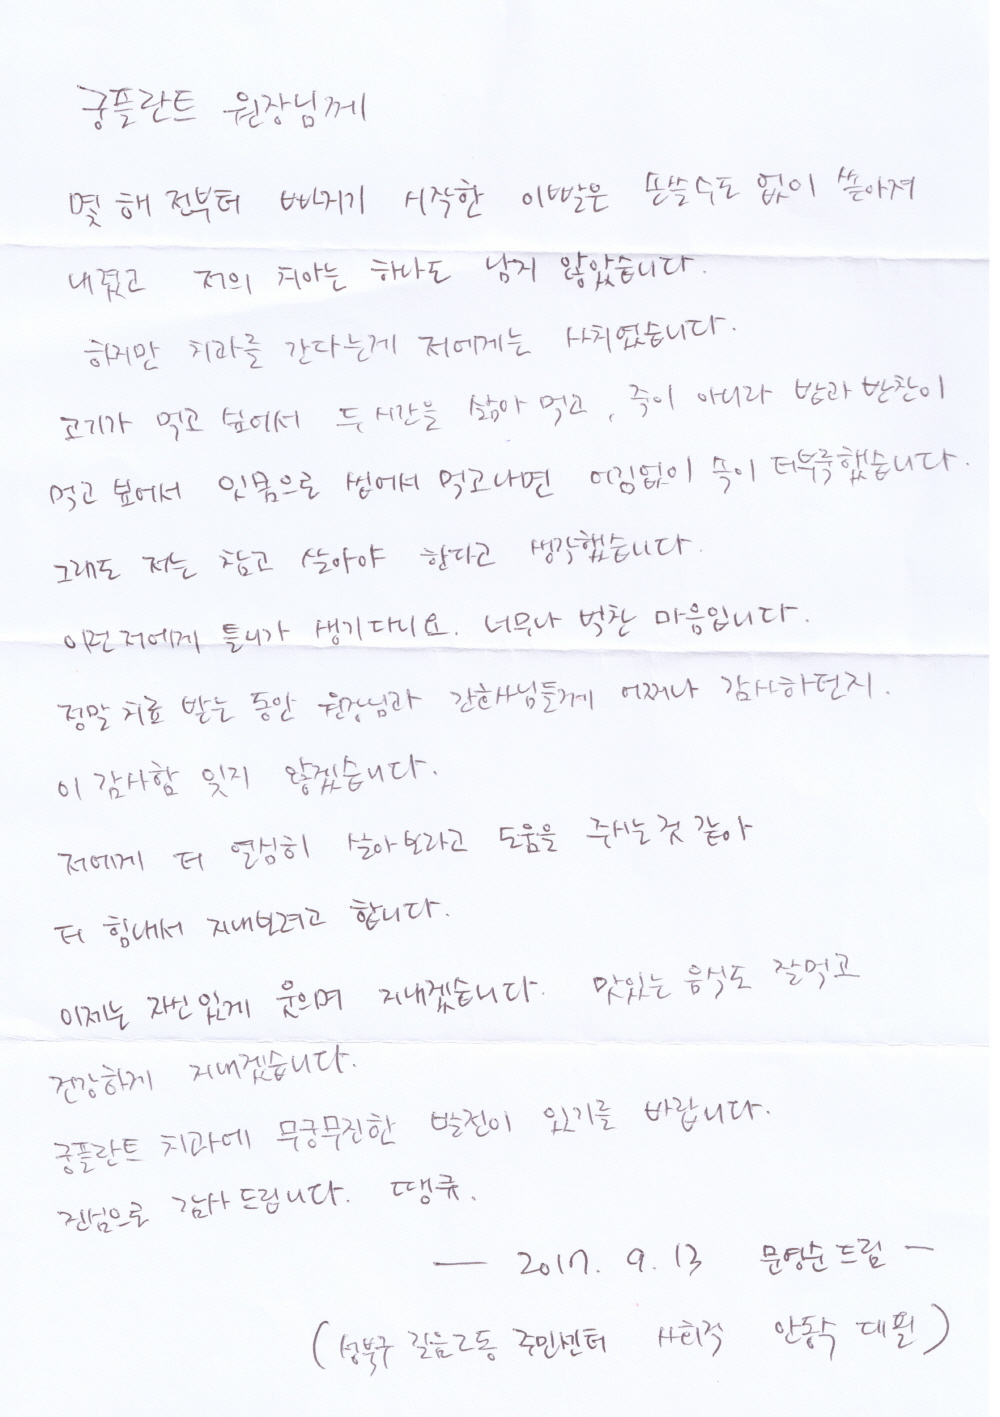 궁플란트 원장님께
몇 해 전부터 빠지기 시작한 이빨은 손쓸수도 없이 쏟아져
내렸고 저의 치아는 하나도 남지 않았습니다.
하지만 치과를 간다는게 저에게는 사치였습니다.
고기가 먹고 싶어서 두 시간을 삶아 먹고, 죽이 아니라 밥과 반찬이
먹고 싶어서 잇몸으로 씹어서 먹고나면 어김없이 속이 더부룩했습니다.
그래도 저는 참고 살아야 한다고 생각했습니다.
이런 저에게 틀니가 생기다니요. 너무나 벅찬 마음입니다.
정말 치료 받는 동안 원장님과 간호사님들께 어찌나 감사하던지.
이 감사함 잊지 않겠습니다.
저에게 더 열심히 살아보라고 도움을 주시는것 같아
더 힘내서 지내보려고 합니다.
이제는 자신있게 웃으며 지내겠습니다. 맛있는 음식도 잘먹고
건강하게 지내겠습니다.
궁플란트 치과에 무궁무진한 발전이 있기를 바랍니다.
진심으로 감사드립니다. 땡큐.
— 2017. 9. 13 문영순 드림 —
(성북구 길음2동 주민센터 사회적 안동수 대필)